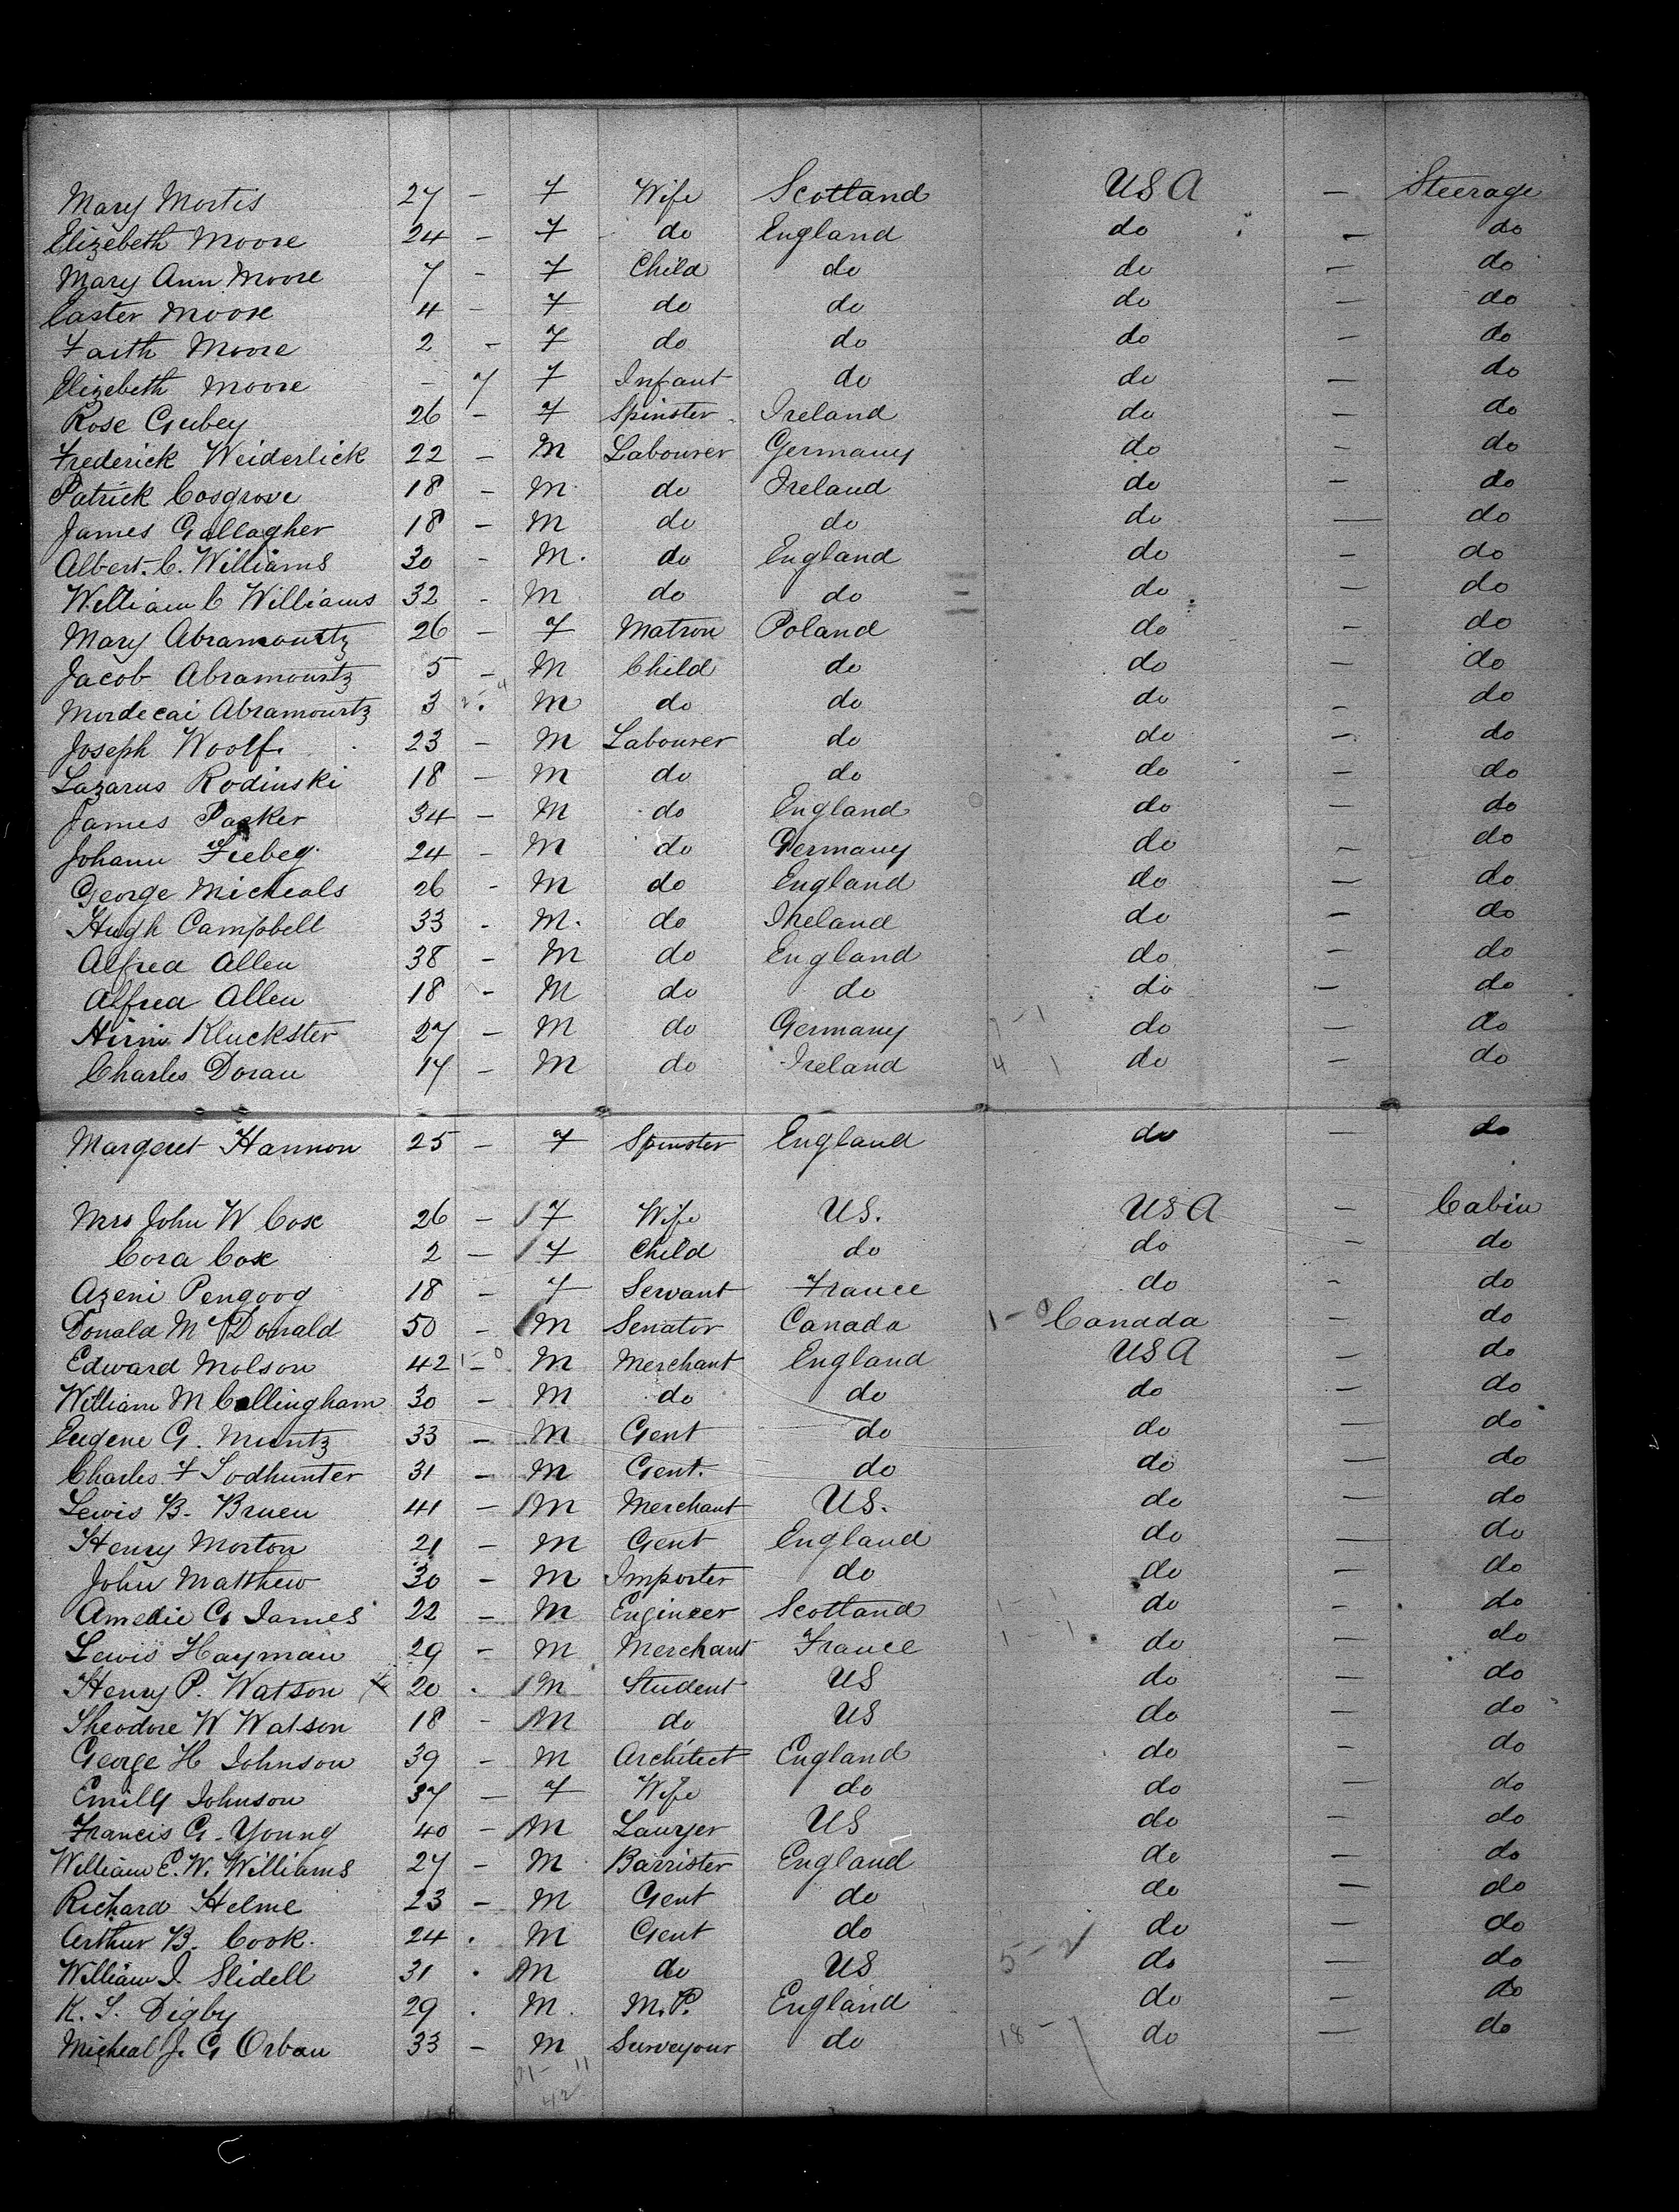 Mary Mortis 27 - F Wife Scotland USA - Steerage
Elizebeth Moore 24 - F do England do - do
Mary Ann Moore 7 - F Child do do - do
Easter Moore 4 - F do do do - do
Faith Moore 2 - F do do do - do
Elizebeth Moore - 7 F Infant do do - do
Rose Gubey 26 - F Spinster Ireland do - do
Frederick Weiderlick 22 - M Labourer Germany do - do
Patrick Cosgrove 18 - M do Ireland do - do
James Gallagher 18 - M do do do - do
Albert. C. Williams 30 - M. do England do - do
William C Williams 32 - M do do do - do
Mary Abramourtz 26 - F Matron Poland do - do
Jacob Abramourtz 5 - M Child do do - do
Mordecai Abramourtz 3 M do do do - do
Joseph Woolf 23 - M Labourer do do - do
Lazarus Rodinski 18 - M do do do - do
James Parker 34 - M do England do - do
Johann Fiebeg 24 - M do Germany do - do
George Micheals 26 - M do England do - do
Hugh Campbell 33 - M. do Ireland do - do
Alfred Allen 38 - M do England do - do
Alfred Allen 18 - M do do do - do
Kluckster 27 - M do Germany do - do
Charles Doran 17 - M do Ireland 4 1 do - do
Margeret Hannon 25 - F Spinster England do - do
Mrs John W Cox 26 - F Wife US. USA - Cabin
Cora Cox 2 - F Child do do - do
Azeni Pengoog 18 - F Servant France do - do
Donald McDonald 50 - M Senator Canada 1-0 Canada - do
Edward Molson 42 1-0 M Merchant England USA - do
William M Collingham 30 - M do do do - do
Eugene G. Muntz 33 - M Gent do do - do
Charles F Todhunter 31 - M Gent. do do - do
Lewis B. Bruen 41 - M Merchant US. do - do
Henry Morton 21 - M Gent England do - do
John Matthew 30 - M Importer do do - do
Amedie G James 22 - M Engineer Scotland do - do
Lewis Hayman 29 - M Merchant France 1-1 do - do
Henry P. Watson X 20 . M Student US do - do
Theodore W Watson 18 - M do US do - do
George H Johnson 39 - M Architect England do - do
Emily Johnson 37 - F Wife do do - do
Francis G. Young 40 - M Lawyer US do - do
William E. W. Williams 27 - M Barrister England do - do
Richard Helme 23 - M Gent do do - do
Arthur B. Cook. 24 . M Gent do do - do
William J Slidell 31 . M do US 5-2 do - do
K. T. Digby 29 . M. M.P. England do - do
Micheal J. G Orban 33 - M Surveyour do 18 - 7 do - do
42